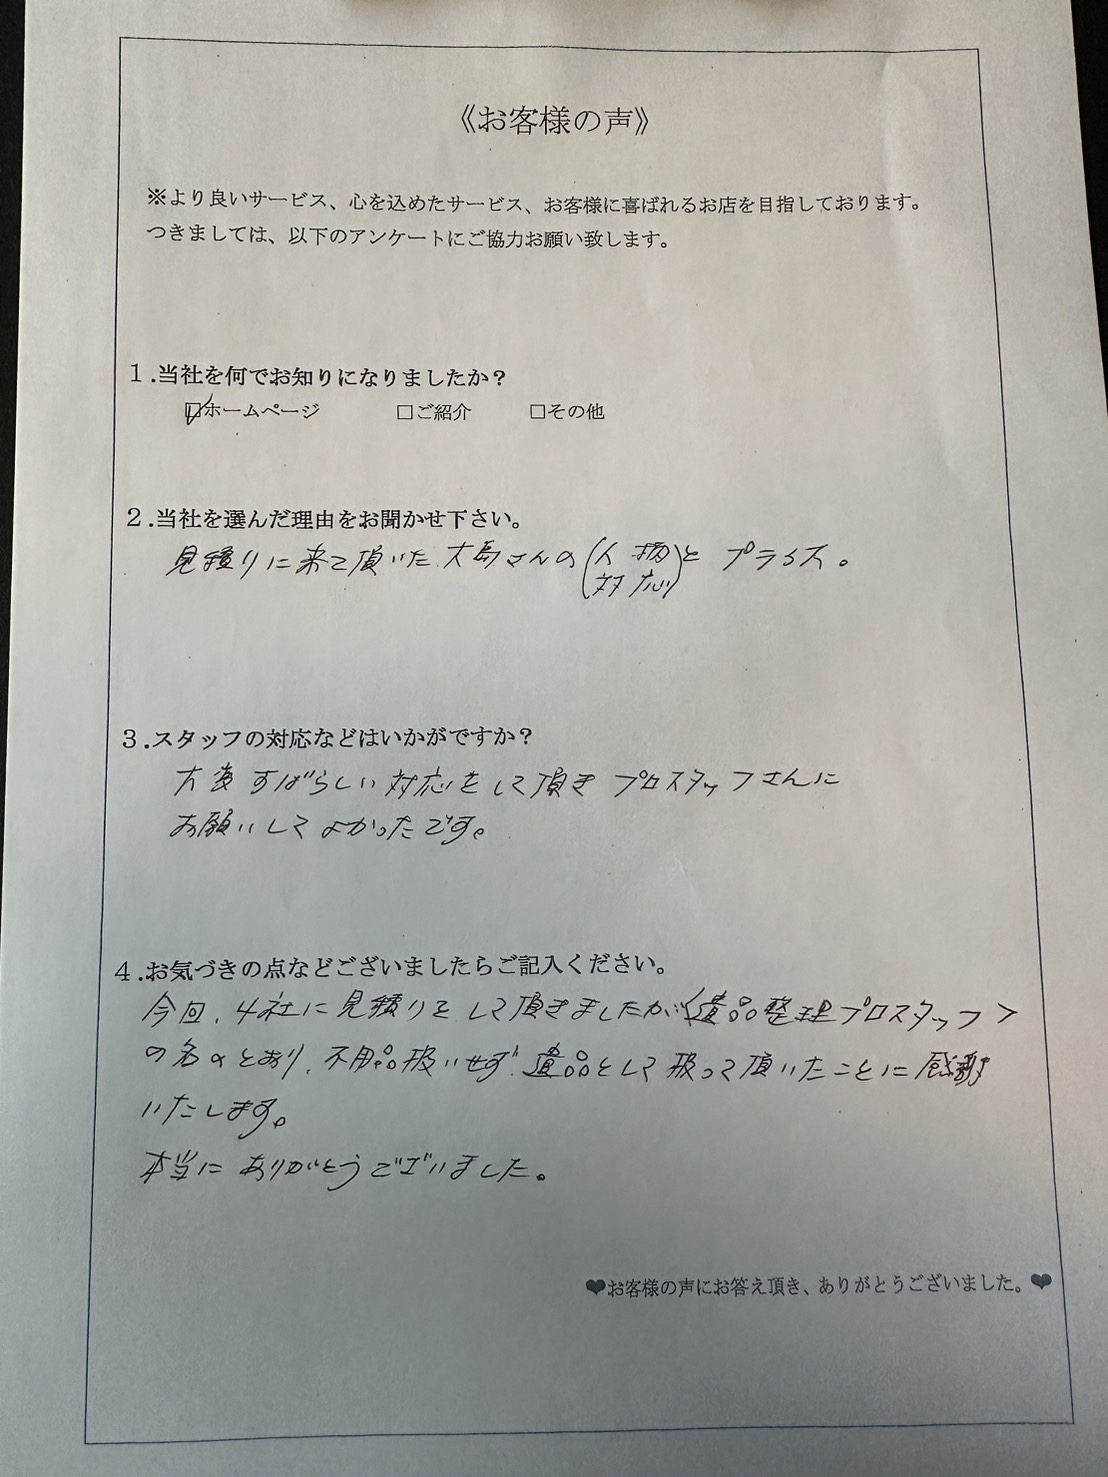 《お客様の声》
※より良いサービス、心を込めたサービス、お客様に喜ばれるお店を目指しております。
つきましては、以下のアンケートにご協力お願い致します。
1.当社を何でお知りになりましたか？
☑ホームページ □ご紹介 □その他
2.当社を選んだ理由をお聞かせ下さい。
見積りに来て頂いた大島さんの(人柄 対応)と プライス。
3.スタッフの対応などはいかがですか？
大変すばらしい対応をして頂き プロスタッフさんに
お願いしてよかったです。
4.お気づきの点などございましたらご記入ください。
今回、4社に見積りをして頂きましたが〈遺品整理プロスタッフ〉
の名のとおり、不用品扱いせず、遺品として扱って頂いたことに感謝
いたします。
本当にありがとうございました。
❤お客様の声にお答え頂き、ありがとうございました。❤